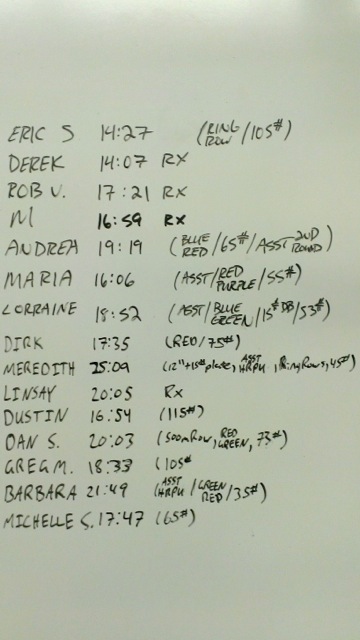 ERIC S 14:27 (RING ROW/105#)
DEREK 14:07 RX
ROB V. 17:21 RX
M 16:59 RX
ANDREA 19:19 (BLUE RED/65#/ASST 2ND ROUND)
MARIA 16:06 (ASST/RED PURPLE/55#)
LORRAINE 18:52 (ASST/BLUE GREEN/15# DB/53#)
DIRK 17:35 (RED/75#)
MEREDITH 25:09 (12"+15# plate, ASST HRPU, Ring Rows, 45#)
LINSAY 20:05 Rx
DUSTIN 16:54 (115#)
DAN S. 20:03 (500m Row, RED GREEN, 73#)
GREG M. 18:33 (105#
BARBARA 21:49 (ASST HRPU/GREEN RED/35#)
MICHELLE S. 17:47 (65#)